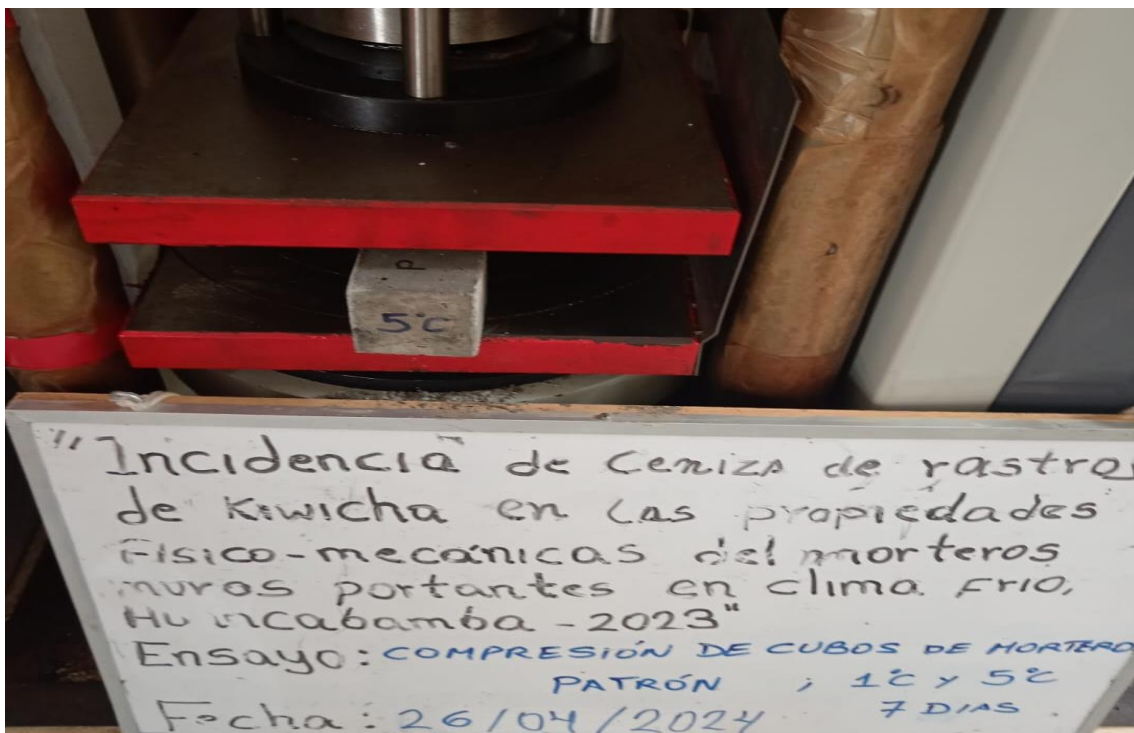 P
5°C
"Incidencia de Ceniza de rastro
de Kiwicha en las propiedades
Físico-mecánicas del morteros
muros portantes en clima Frio,
Huancabamba - 2023"
Ensayo: COMPRESIÓN DE CUBOS DE MORTERO
PATRÓN ; 1°C y 5°C
7 DIAS.
Fecha: 26/04/2024